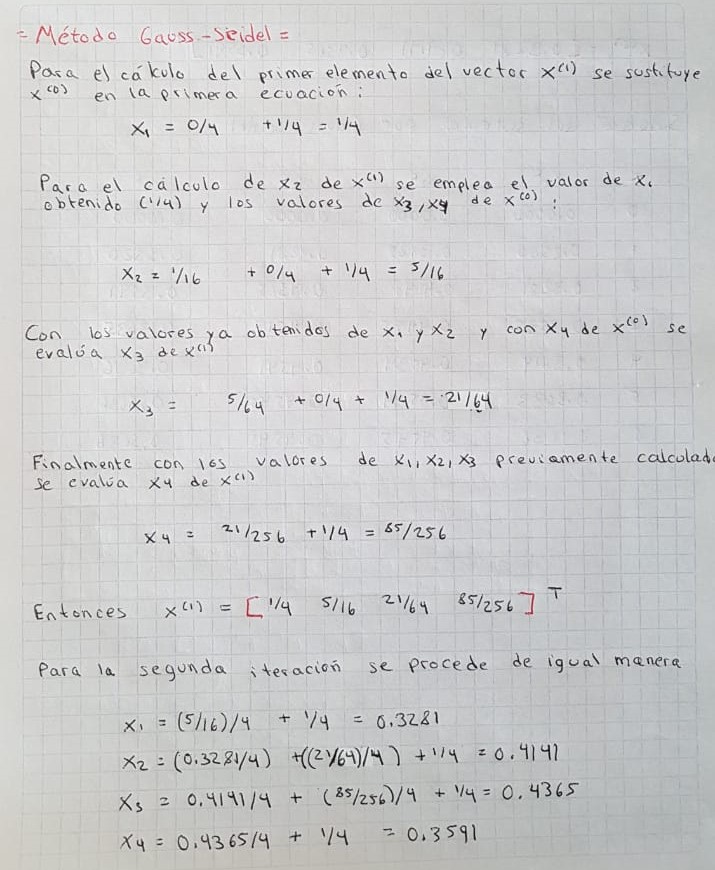 = Método Gauss-Seidel =
Para el cálculo del primer elemento del vector x⁽¹⁾ se sustituye
x⁽⁰⁾ en la primera ecuación:
x₁ = 0/4 + 1/4 = 1/4
Para el cálculo de x₂ de x⁽¹⁾ se emplea el valor de x₁
obtenido (1/4) y los valores de x₃, x₄ de x⁽⁰⁾:
x₂ = 1/16 + 0/4 + 1/4 = 5/16
Con los valores ya obtenidos de x₁ y x₂ y con x₄ de x⁽⁰⁾ se
evalúa x₃ de x⁽¹⁾
x₃ = 5/64 + 0/4 + 1/4 = 21/64
Finalmente con los valores de x₁, x₂, x₃ previamente calculad
se evalúa x₄ de x⁽¹⁾
x₄ = 21/256 + 1/4 = 85/256
Entonces x⁽¹⁾ = [1/4 5/16 21/64 85/256]ᵀ
Para la segunda iteración se procede de igual manera
x₁ = (5/16)/4 + 1/4 = 0.3281
x₂ = (0.3281/4) + ((21/64)/4) + 1/4 = 0.4141
x₃ = 0.4141/4 + (85/256)/4 + 1/4 = 0.4365
x₄ = 0.4365/4 + 1/4 = 0.3591